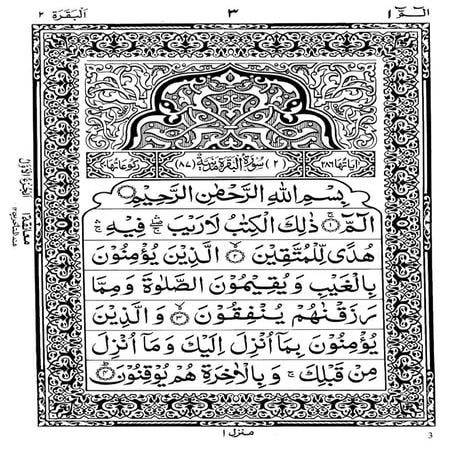 الٓـمّٓ ١ ٣ اَلْبَقَرَة ٢
اٰیاتها ٢٨٦ (٢) سُوْرَةُ الْبَقَرَةِ مَدَنِيَّةٌ (٨٧) رکوعاتها ٤٠
بِسْمِ اللهِ الرَّحْمٰنِ الرَّحِيْمِ
الٓمّٓ ۚ١ ذٰلِكَ الْكِتٰبُ لَا رَيْبَ ۛ فِيْهِ ۛ
هُدًى لِّلْمُتَّقِيْنَ ۙ٢ الَّذِيْنَ يُؤْمِنُوْنَ
بِالْغَيْبِ وَ يُقِيْمُوْنَ الصَّلٰوةَ وَ مِمَّا
رَزَقْنٰهُمْ يُنْفِقُوْنَ ۙ٣ وَ الَّذِيْنَ
يُؤْمِنُوْنَ بِمَاۤ اُنْزِلَ اِلَيْكَ وَ مَاۤ اُنْزِلَ
مِنْ قَبْلِكَ ۚ وَ بِالْاٰخِرَةِ هُمْ يُوْقِنُوْنَ ؕ٤
منزل ١
3